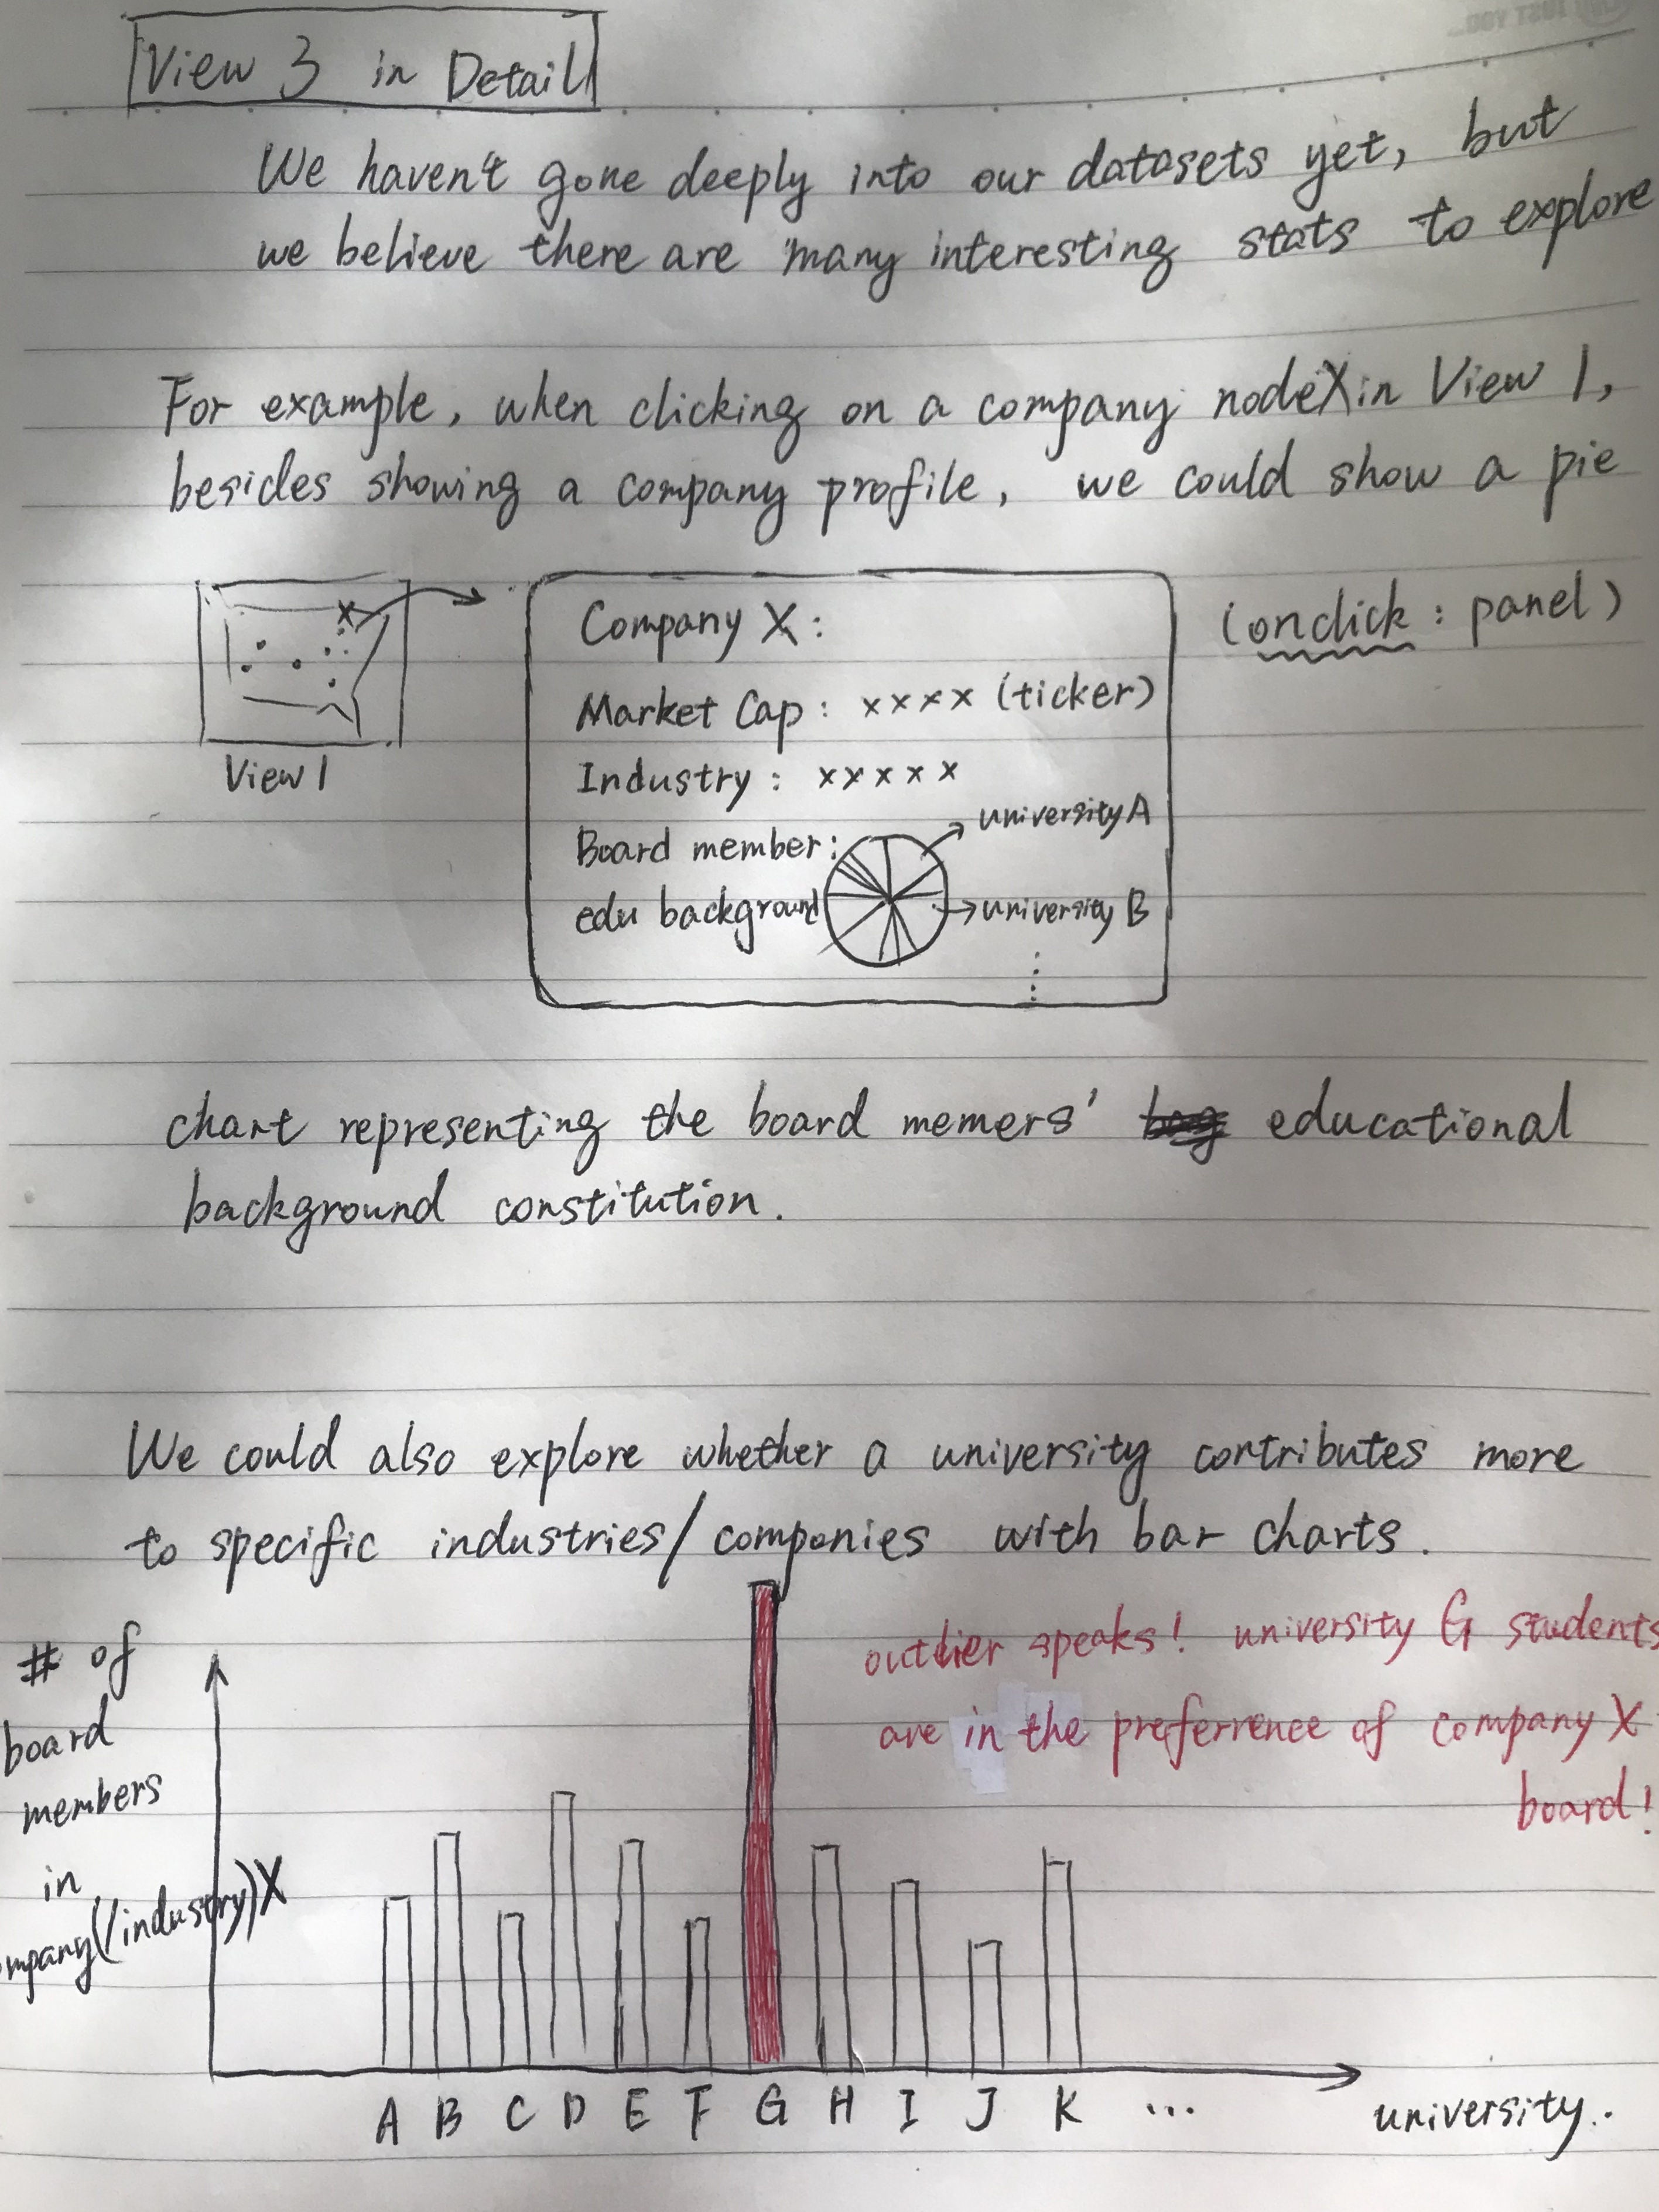 View 3 in Detail
We haven't gone deeply into our datasets yet, but
we believe there are many interesting stats to explore
For example, when clicking on a company nodeX in View 1,
besides showing a company profile, we could show a pie
View 1
Company X :
Market Cap : xxxx (ticker)
Industry : xxxxx
Board member :
edu background
university A
university B
(onclick : panel)
chart representing the board memers' educational
background constitution.
We could also explore whether a university contributes more
to specific industries/companies with bar charts.
# of
board
members
in
mpany(/industry)X
outlier speaks! university G students
are in the preferrence of company X
board!
A B C D E F G H I J K ...
university..